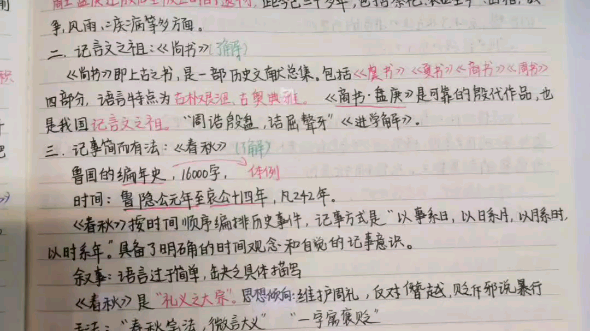 争,风雨、疾病等多方面。
二、记言文之祖:《尚书》(了解)
《尚书》即上古之书,是一部历史文献总集。包括《虞书》《夏书》《商书》《周书》
四部分,语言特点为古朴艰涩,古奥典雅。《商书·盘庚》是可靠的殷代作品,也
是我国记言文之祖。“周诰殷盘,诘屈聱牙”《进学解》。
三、记事简而有法:《春秋》(了解)
鲁国的编年史,16000字, 体例
时间:鲁隐公元年至哀公十四年,凡242年。
《春秋》按时间顺序编排历史事件,记事方式是“以事系日,以日系月,以月系时,
以时系年。”具备了明确的时间观念和自觉的记事意识。
叙事:语言过于简单,缺乏具体描写
《春秋》是“礼义之大宗”。思想倾向:维护周礼,反对僭越,贬斥邪说暴行
“春秋笔法,微言大义” “一字寓褒贬”